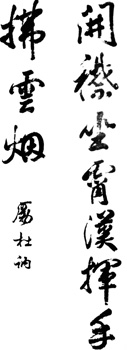 開襟坐霄漢揮手
拂雲烟
厲杜訥